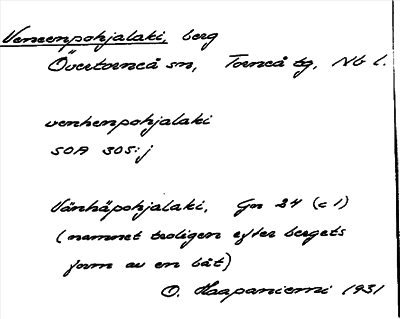 Veneenpohjalaki, berg
Övertorneå sn, Torneå tg, Nb l.
venhenpohjalaki
SOA 305:j
Vänhäpohjalaki, Gn 24 (c 1)
(namnet troligen efter bergets
form av en båt)
O. Haapaniemi 1931